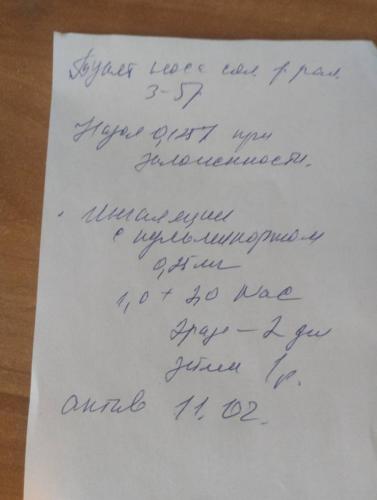 Туалет носа сол. р-рам.
3-5р
Назол 0,125% при
заложенности.
Ингаляции
с пульмикортом
0,25мг
1,0 + 2,0 NaC
2 раза - 2 дн
затем 1 р.
актив 11.02.